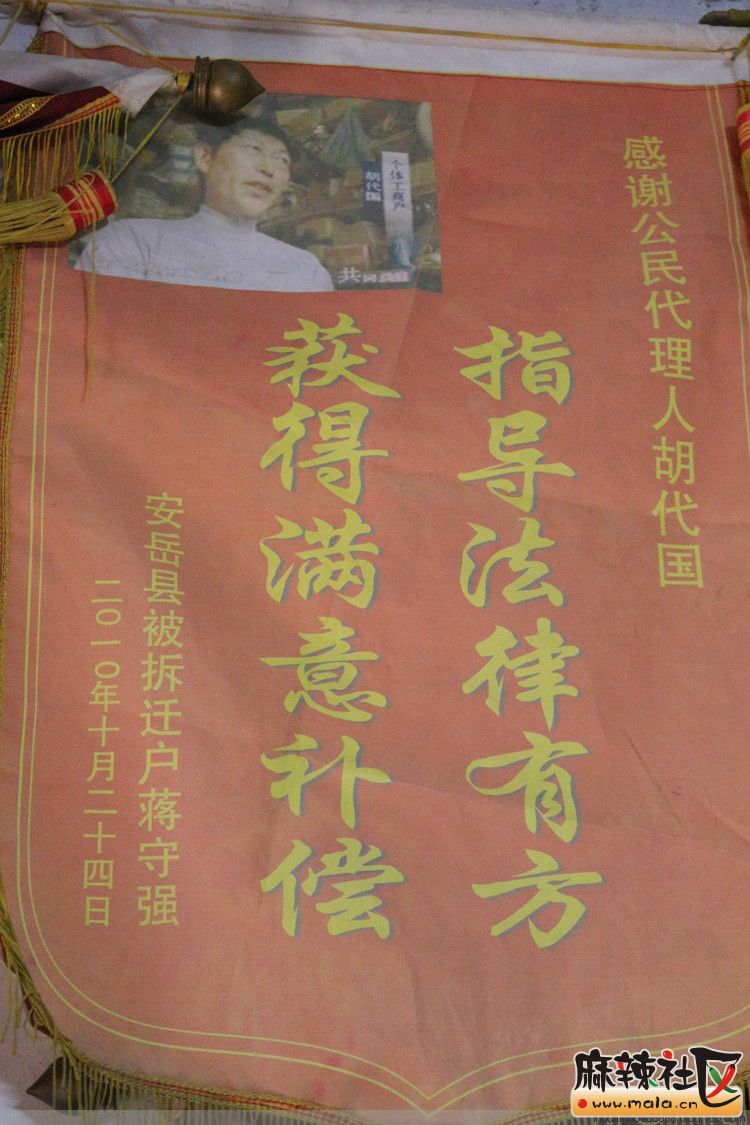 感谢公民代理人胡代国
指导法律有方
获得满意补偿
安岳县被拆迁户蒋守强
二〇一〇年十月二十四日
个体工商户
胡代国
共同关注
麻辣社区
www.mala.cn